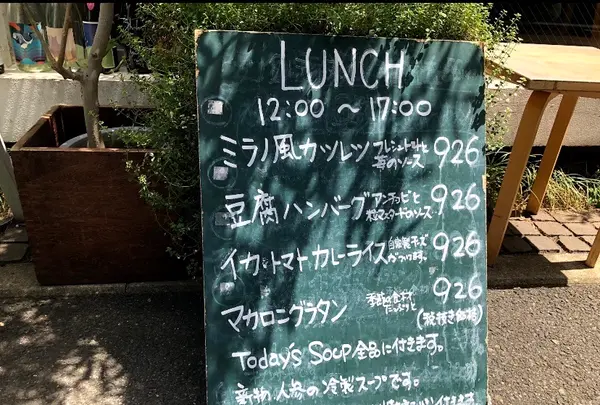 LUNCH
12:00 ～ 17:00
ミラノ風カツレツ フレッシュトマトと 926
のソース
豆腐ハンバーグ アンチョビと 926
粒マスタードのソース
イカ・トマトカレーライス 自家製チーズ 926
がつきます。
マカロニグラタン 季節の食材 926
たっぷりと
(税抜き価格)
Today's Soup 全品に付きます。
人参の冷製スープです。
付きます